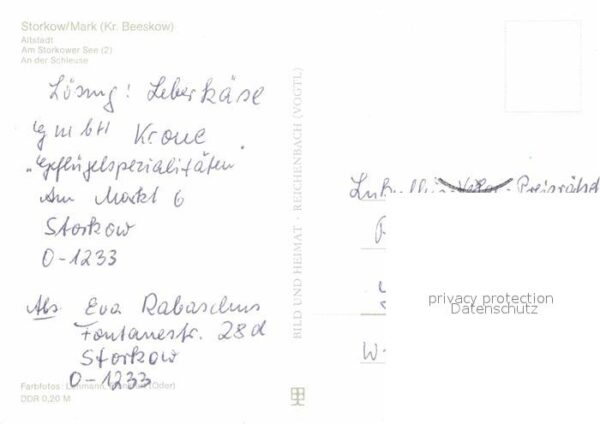 Storkow/Mark (Kr. Beeskow)
Altstadt
Am Storkower See (2)
An der Schleuse
Lösung: Leberkäse
GmbH Krone
"Geflügelspezialitäten"
Am Markt 6
Storkow
O-1233
Abs Eva Rabaschus
Fontanestr. 28d
Storkow
O-1233
Farbfotos: Lehmann, Frankfurt (Oder)
DDR 0,20 M
BILD UND HEIMAT · REICHENBACH (VOGTL)
Preisrätsel
W-
privacy protection
Datenschutz